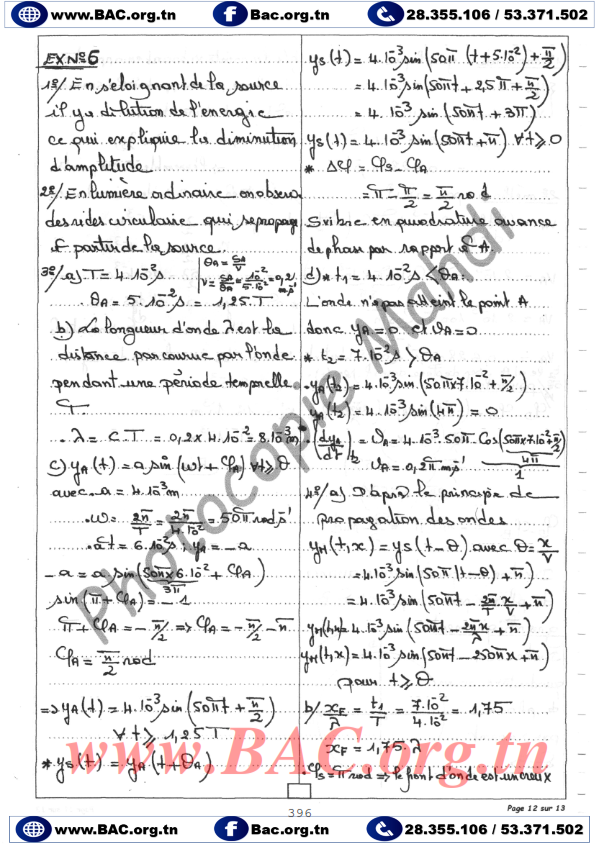 www.BAC.org.tn Bac.org.tn 28.355.106 / 53.371.502
EX N°6
1°/ En s'eloignant de la source
il y a dilution de l'energie
ce qui explique la diminution
d'amplitude
2°/ En lumière ordinaire on observe
des rides circulaire qui se propage
à partir de la source.
3°/ a) T = 4.10⁻²s
θA = SA/V
V = SA/θA = 10⁻²/5.10⁻² = 0,2 m.s⁻¹
. θA = 5.10⁻²s = 1,25.T
b) La longueur d'onde λ est la
distance parcourue par l'onde
pendant une période temporelle
T.
. λ = C.T = 0,2 x 4.10⁻² = 8.10⁻³m
c) yA(t) = a sin(ωt + φA) ∀t ≥ θ
avec . a = 4.10⁻³m
. ω = 2π/T = 2π/4.10⁻² = 50π rad.s⁻¹
. à t = 6.10⁻²s, yA = -a
-a = a sin(50π x 6.10⁻² + φA)
3π
sin(π + φA) = -1
π + φA = -π/2 => φA = -π/2 - π
φA = π/2 rad
=> yA(t) = 4.10⁻³ sin(50πt + π/2)
∀ t ≥ 1,25 T
* yS(t) = yA(t + θA)
yS(t) = 4.10⁻³ sin(50π (t + 5.10⁻²) + π/2)
= 4.10⁻³ sin(50πt + 2,5π + π/2)
= 4.10⁻³ sin(50πt + 3π)
yS(t) = 4.10⁻³ sin(50πt + π) ∀ t ≥ 0
* Δφ = φS - φA
= π - π/2 = π/2 rad
S vibre en quadrature avance
de phase par rapport à A.
d) * t₁ = 4.10⁻²s < θA :
L'onde n'a pas atteint le point A
donc yA = 0 et vA = 0
* t₂ = 7.10⁻²s > θA
. yA(t₂) = 4.10⁻³ sin(50π x 7.10⁻² + π/2)
yA(t₂) = 4.10⁻³ sin(4π) = 0
. (dyA/dt)t₂ = vA = 4.10⁻³.50π Cos(50π x 7.10⁻² + π/2)
4π
vA = 0,2π m.s⁻¹
1
4°/ a) D'après le principe de
propagation des ondes
yM(t,x) = yS(t - θ) avec θ = x/V
= 4.10⁻³ sin(50π (t - θ) + π)
= 4.10⁻³ sin(50πt - 2π/T x/V + π)
yM(t,x) = 4.10⁻³ sin(50πt - 2πx/λ + π)
yM(t,x) = 4.10⁻³ sin(50πt - 250πx + π)
pour t ≥ θ
b/ xF/λ = t₁/T = 7.10⁻²/4.10⁻² = 1,75
xF = 1,75.λ
. φS = π rad => le front d'onde est un creux
Photocopie Mahdi
www.BAC.org.tn
396
Page 12 sur 13
www.BAC.org.tn Bac.org.tn 28.355.106 / 53.371.502